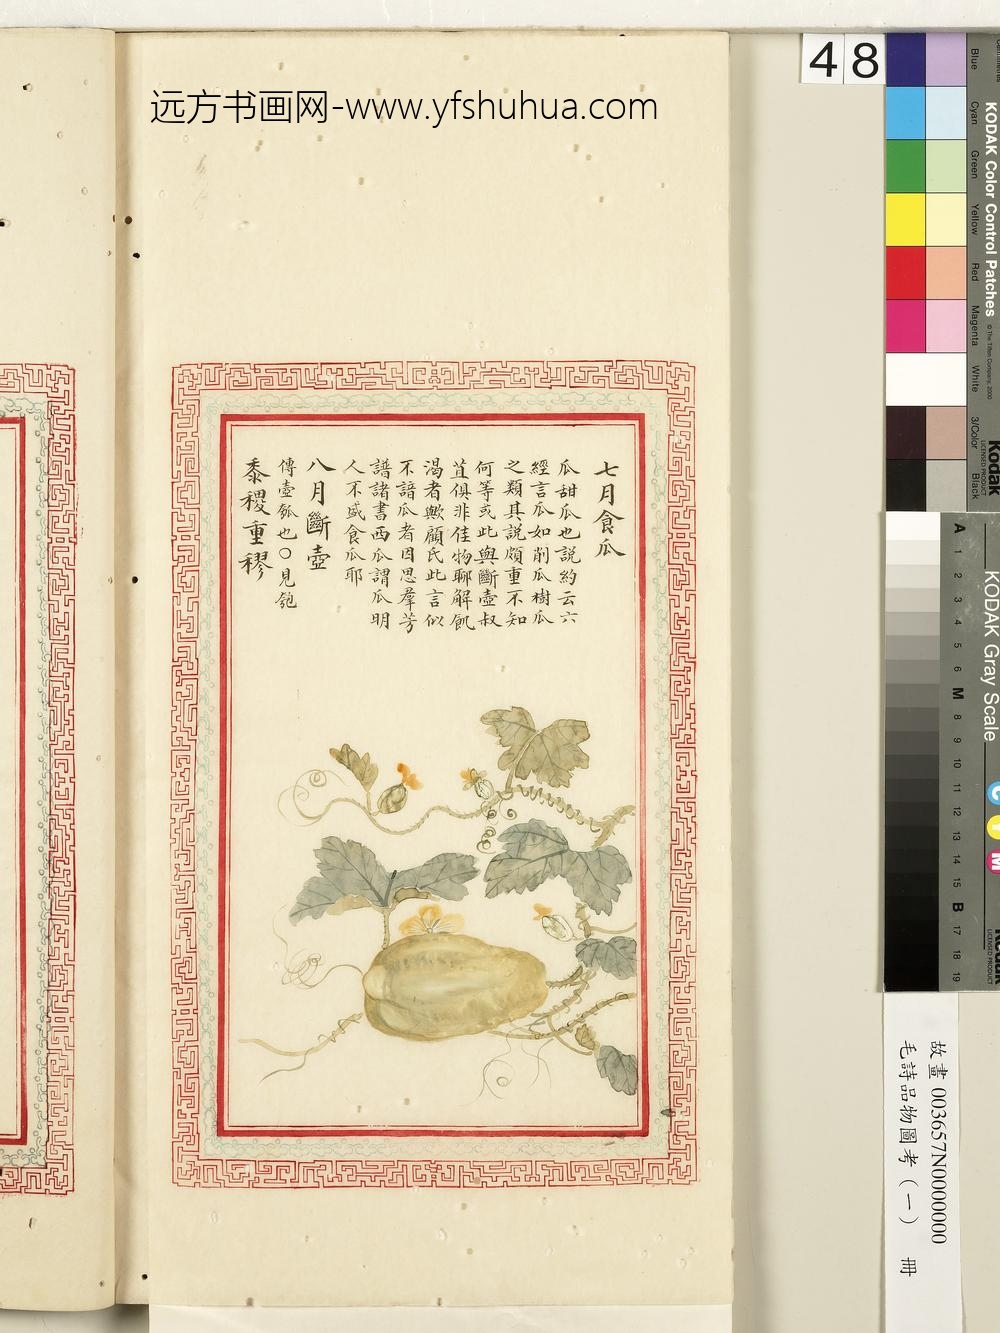 远方书画网-www.yfshuhua.com
48
七月食瓜
瓜甜瓜也説約云六
經言瓜如削瓜樹瓜
之類其説頗重不知
何等或此與斷壺叔
苴俱非佳物聊解飢
渴者歟顧氏此言似
不諳瓜者因思羣芳
譜諸書西瓜謂瓜明
人不盛食瓜耶
八月斷壺
傳壺瓠也○見匏
黍稷重穋
Blue
Cyan
Green
Yellow
Red
Magenta
White
3/Color
Black
KODAK Color Control Patches
© The Tiffen Company, 2000
Kodak
LICENSED PRODUCT
KODAK Gray Scale
A 1 2 3 4 5 6 M 8 9 10 11 12 13 14 15 B 17 18 19
C
Y
M
Kodak
LICENSED PRODUCT
故畫 003657N0000000
毛詩品物圖考（一） 冊